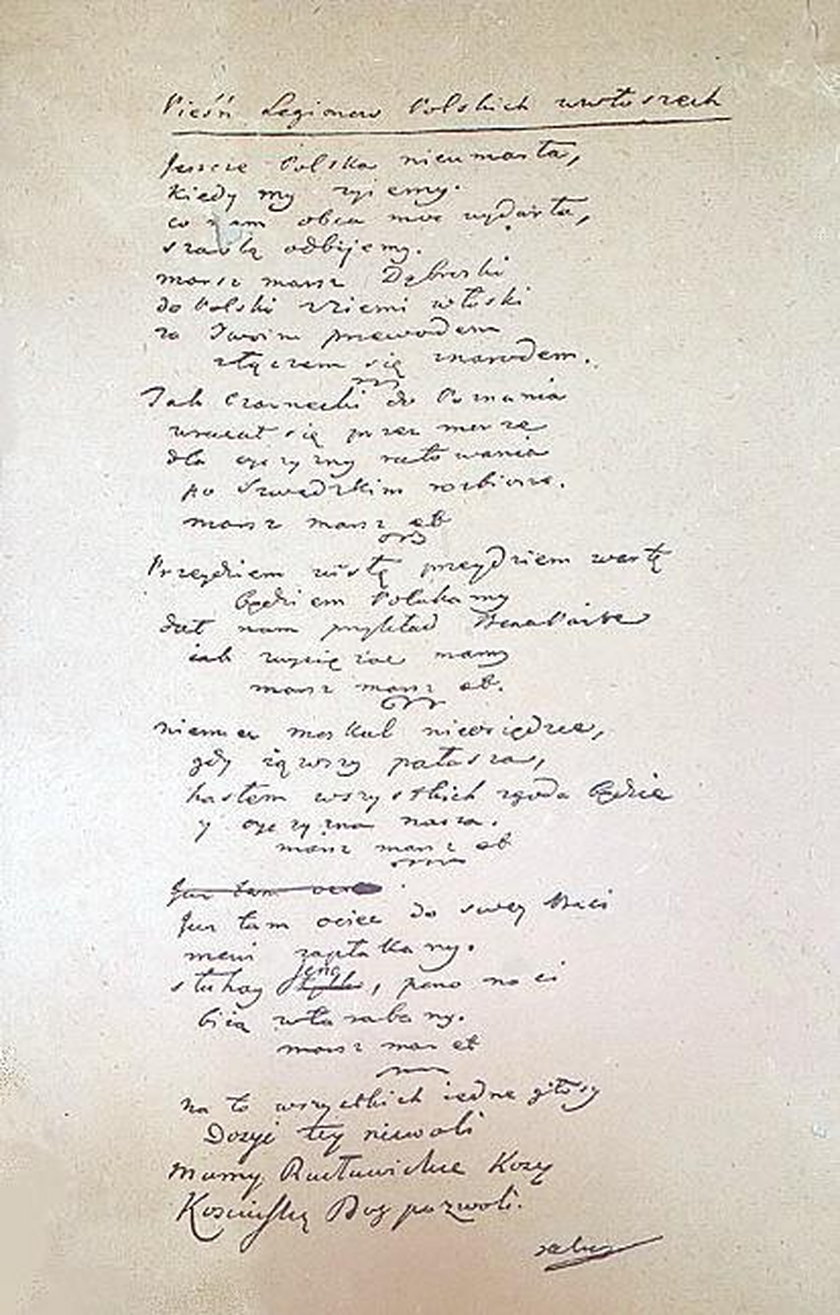 Pieśń Legionow Polskich wewłoszech
Jeszcze Polska nieumarła,
kiedy my żyiemy.
co nam obca moc wydarła,
szablą odbijemy.
marsz marsz Dąbroski
do Polski zziemi włoski
za Twoim przewodem
złączem się znarodem.
Jak Czarnecki do Poznania
wracał się przez morze
dla oyczyzny ratowania
po Szwedzkim rozbiorze.
marsz marsz et
Przeydziem wisłę przeydziem wartę
będziem Polakamy
dał nam przykład Bonaparte
iak zwycięzac mamy
marsz marsz et.
niemiec moskal nieosiędzie,
gdy iąwszy pałasza,
hasłem wszystkich zgoda będzie
y oyczyzna nasza.
marsz marsz et
Juz tam ociec
Juz tam ociec do swey Basi
mowi zapłakany.
słuhay jeno, pono nasi
bią wtarabany.
marsz mar et
na to wszystkich iedne głosy
Dosyć tey niewoli
mamy Racławickie Kosy
Kosciuszkę Bog pozwoli.